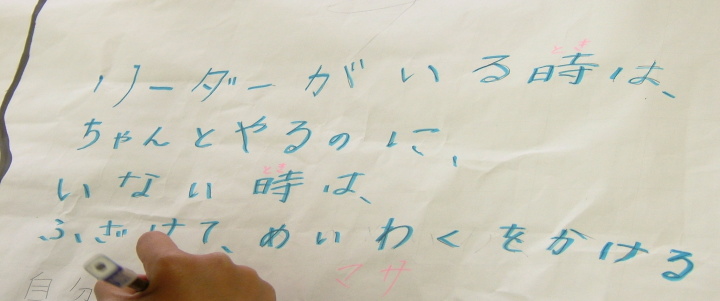 リーダーがいる時は、
とき
ちゃんとやるのに、
いない時は、
とき
ふざけて、めいわくをかける
マサ
自分